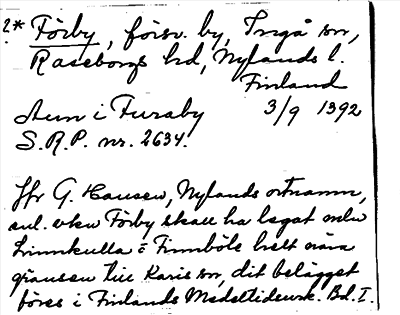 2* Förby, försv. by, Ingå sn,
Raseborgs hd, Nylands l.
Finland
Aun i Furaby 3/9 1392
S.R.P. nr. 2634.
Jfr G. Hausen, Nylands ortnamn,
enl. vken Förby skall ha legat mln
Linnkulla o Finnböle helt nära
gränsen till Karis sn, dit belägget
föres i Finlands Medeltidsurk. Bd. I.